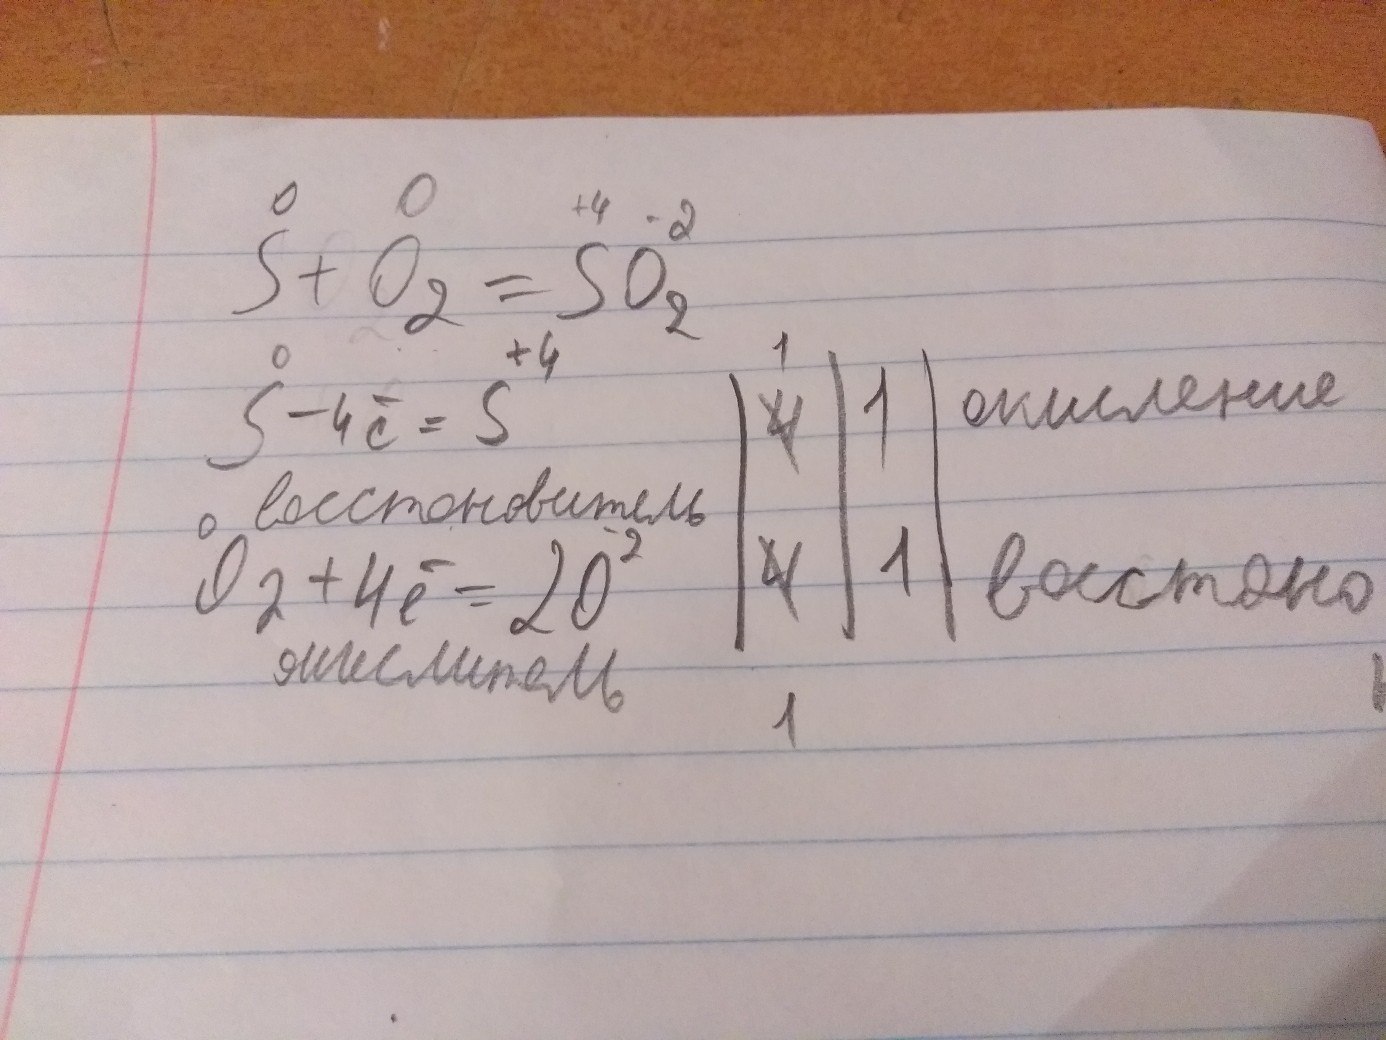 0 0 +4 -2
S + O2 = SO2
0 +4 1
S - 4ē = S 4 1 окисление
восстановитель
0 -2
O2 + 4ē = 2O 4 1 восстано
окислитель
1